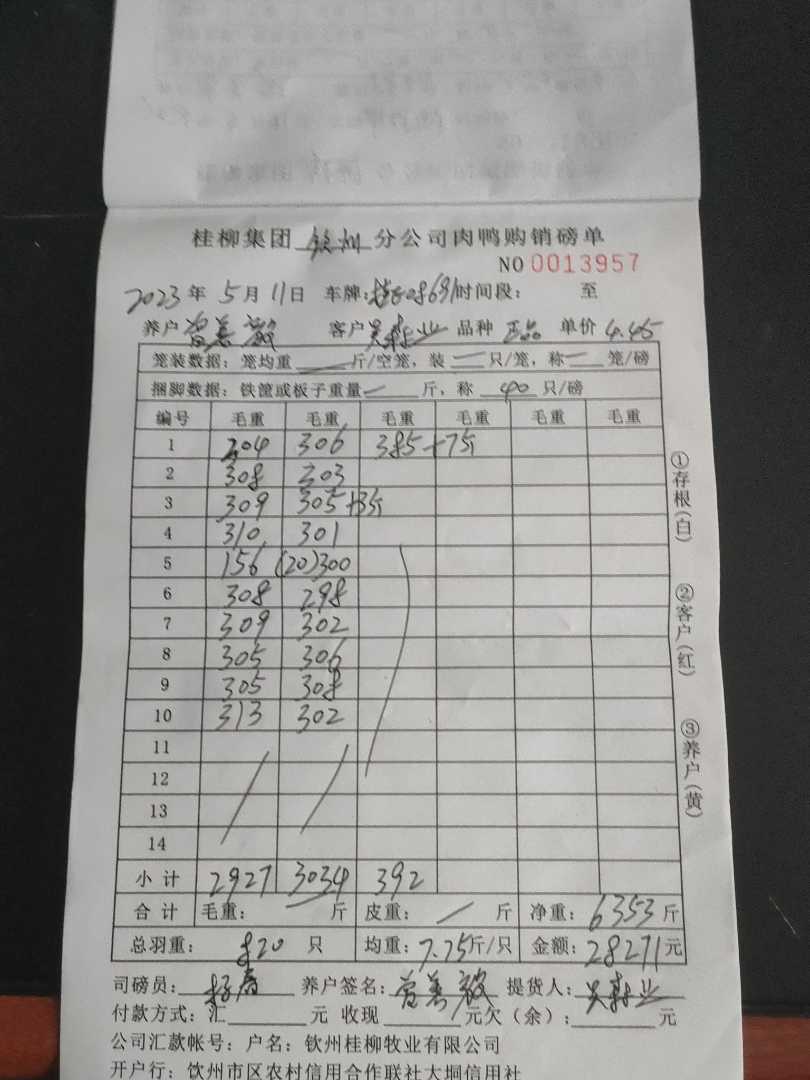 桂柳集团 钦州 分公司肉鸭购销磅单
NO 0013957
2023年 5月 11日 车牌: 时间段: 至
养户 曾善毅 客户 吴 业 品种 正品 单价 4.45
笼装数据: 笼均重 斤/空笼, 装 只/笼, 称 笼/磅
捆脚数据: 铁筐或板子重量 斤, 称 40 只/磅
编号 毛重 毛重 毛重 毛重 毛重 毛重
1 304 306 385+7斤
2 308 303
3 309 305+3斤
4 310 301
5 156(20) 300
6 308 298
7 309 302
8 305 306
9 305 308
10 313 302
11
12
13
14
小计 2927 3034 392
合计 毛重: 斤 皮重: 斤 净重: 6353 斤
总羽重: 820 只 均重: 7.75斤/只 金额: 28271元
司磅员: 养户签名: 曾善毅 提货人: 吴 业
付款方式: 汇 元 收现 元欠(余): 元
公司汇款帐号: 户名: 钦州桂柳牧业有限公司
开户行: 钦州市区农村信用合作联社大垌信用社
①存根(白)
②客户(红)
③养户(黄)